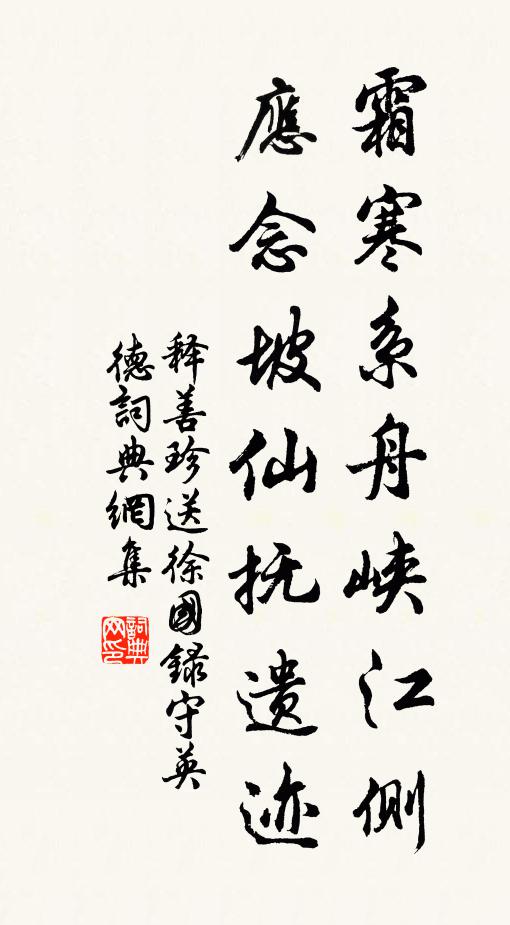 霜寒系舟峡江侧
應念坡仙抚遗迹
释善珍送徐國錄守英
德詞典網集
詞典网印